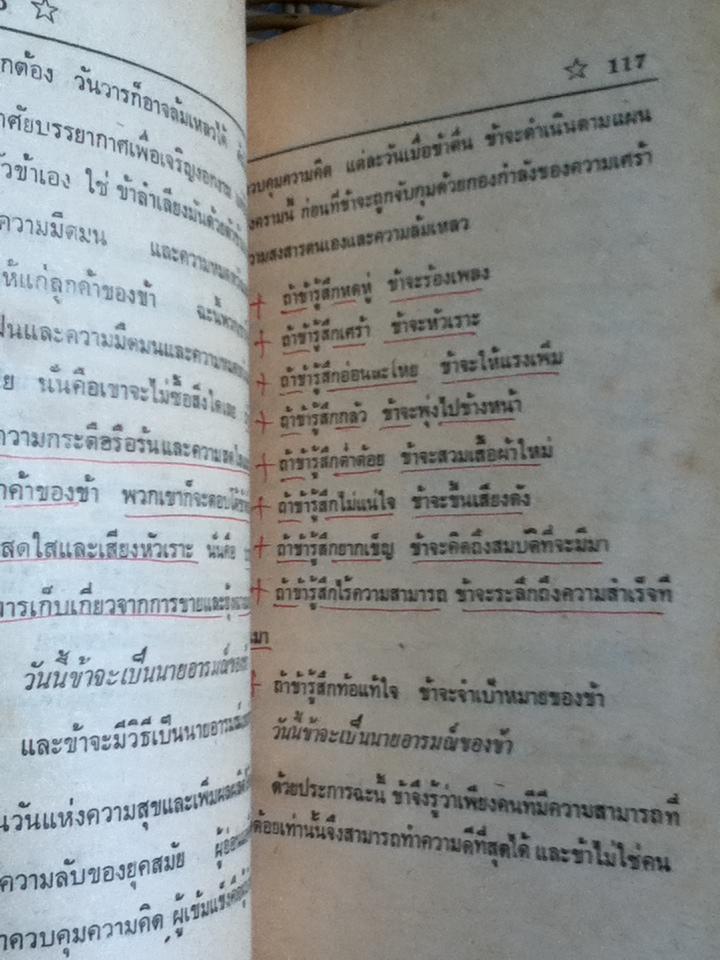 กต้อง วันวารก็อาจล้มเหลวได้
าศัยบรรยากาศเพื่อเจริญงอกงาม
ัวข้าเอง ใช่ ข้าลำเลียงมันด้วยตัวข้า
ความมืดมน และความหมด
ห้แก่ลูกค้าของข้า ฉะนั้นพวก
ฝนและความมืดมนและความหม
ย นั่นคือเขาจะไม่ซื้อสิ่งใดเลย
ความกระตือรือร้นและความสดใส
าค้าของข้า พวกเขาก็จะตอบ
สดใสและเสียงหัวเราะ นั่นคือ
การเก็บเกี่ยวจากการขายและ
วันนี้ข้าจะเป็นนายอารมณ์ของ
และข้าจะมีวิธีเป็นนายอารมณ์
นวันแห่งความสุขและเพิ่มผลผลิต
ความลับของยุคสมัย ผู้อ่อน
าควบคุมความคิด ผู้เข้มแข็งคือ
☆ 117
วบคุมความคิด แต่ละวันเมื่อข้าตื่น ข้าจะดำเนินตามแผน
งครามนี้ ก่อนที่ข้าจะถูกจับกุมด้วยกองกำลังของความเศร้า
วามสงสารตนเองและความล้มเหลว
ถ้าข้ารู้สึกหดหู่ ข้าจะร้องเพลง
ถ้าข้ารู้สึกเศร้า ข้าจะหัวเราะ
ถ้าข้ารู้สึกอ่อนละโหย ข้าจะให้แรงเพิ่ม
ถ้าข้ารู้สึกกลัว ข้าจะพุ่งไปข้างหน้า
ถ้าข้ารู้สึกต่ำต้อย ข้าจะสวมเสื้อผ้าใหม่
ถ้าข้ารู้สึกไม่แน่ใจ ข้าจะขึ้นเสียงดัง
ถ้าข้ารู้สึกยากเข็ญ ข้าจะคิดถึงสมบัติที่จะมีมา
ถ้าข้ารู้สึกไร้ความสามารถ ข้าจะระลึกถึงความสำเร็จที่
มา
ถ้าข้ารู้สึกท้อแท้ใจ ข้าจะจำเป้าหมายของข้า
วันนี้ข้าจะเป็นนายอารมณ์ของข้า
ด้วยประการฉะนี้ ข้าจึงรู้ว่าเพียงคนที่มีความสามารถที่
ด้อยเท่านั้นจึงสามารถทำความดีที่สุดได้ และข้าไม่ใช่คน